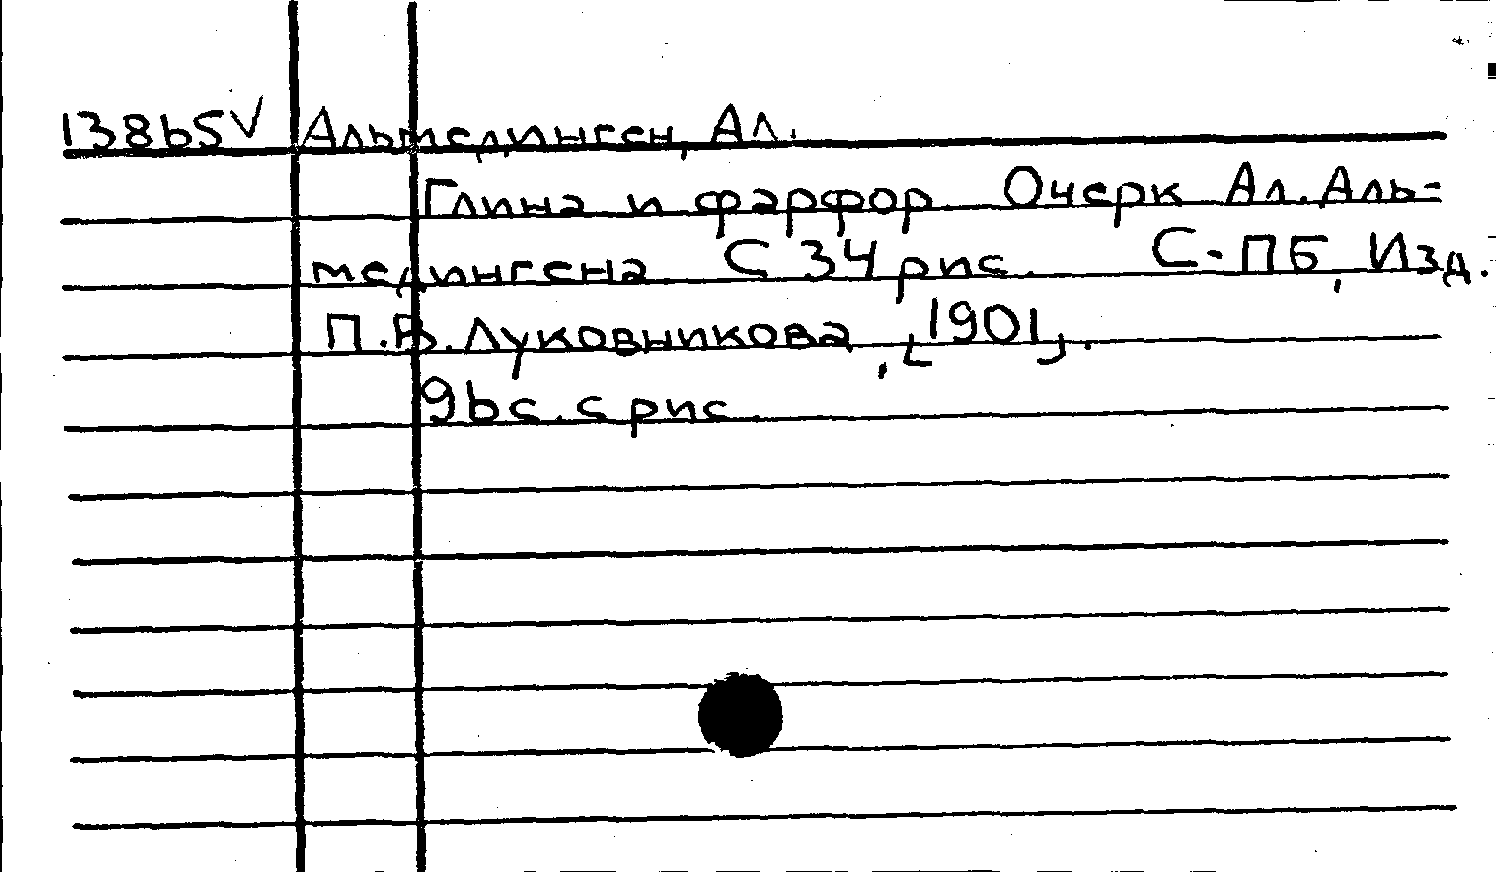 13865 V Альмединген, Ал.
Глина и фарфор. Очерк Ал. Аль=
медингена С 34 рис. С-ПБ, Изд.
П.В. Луковникова, [1901].
96 с. с рис.